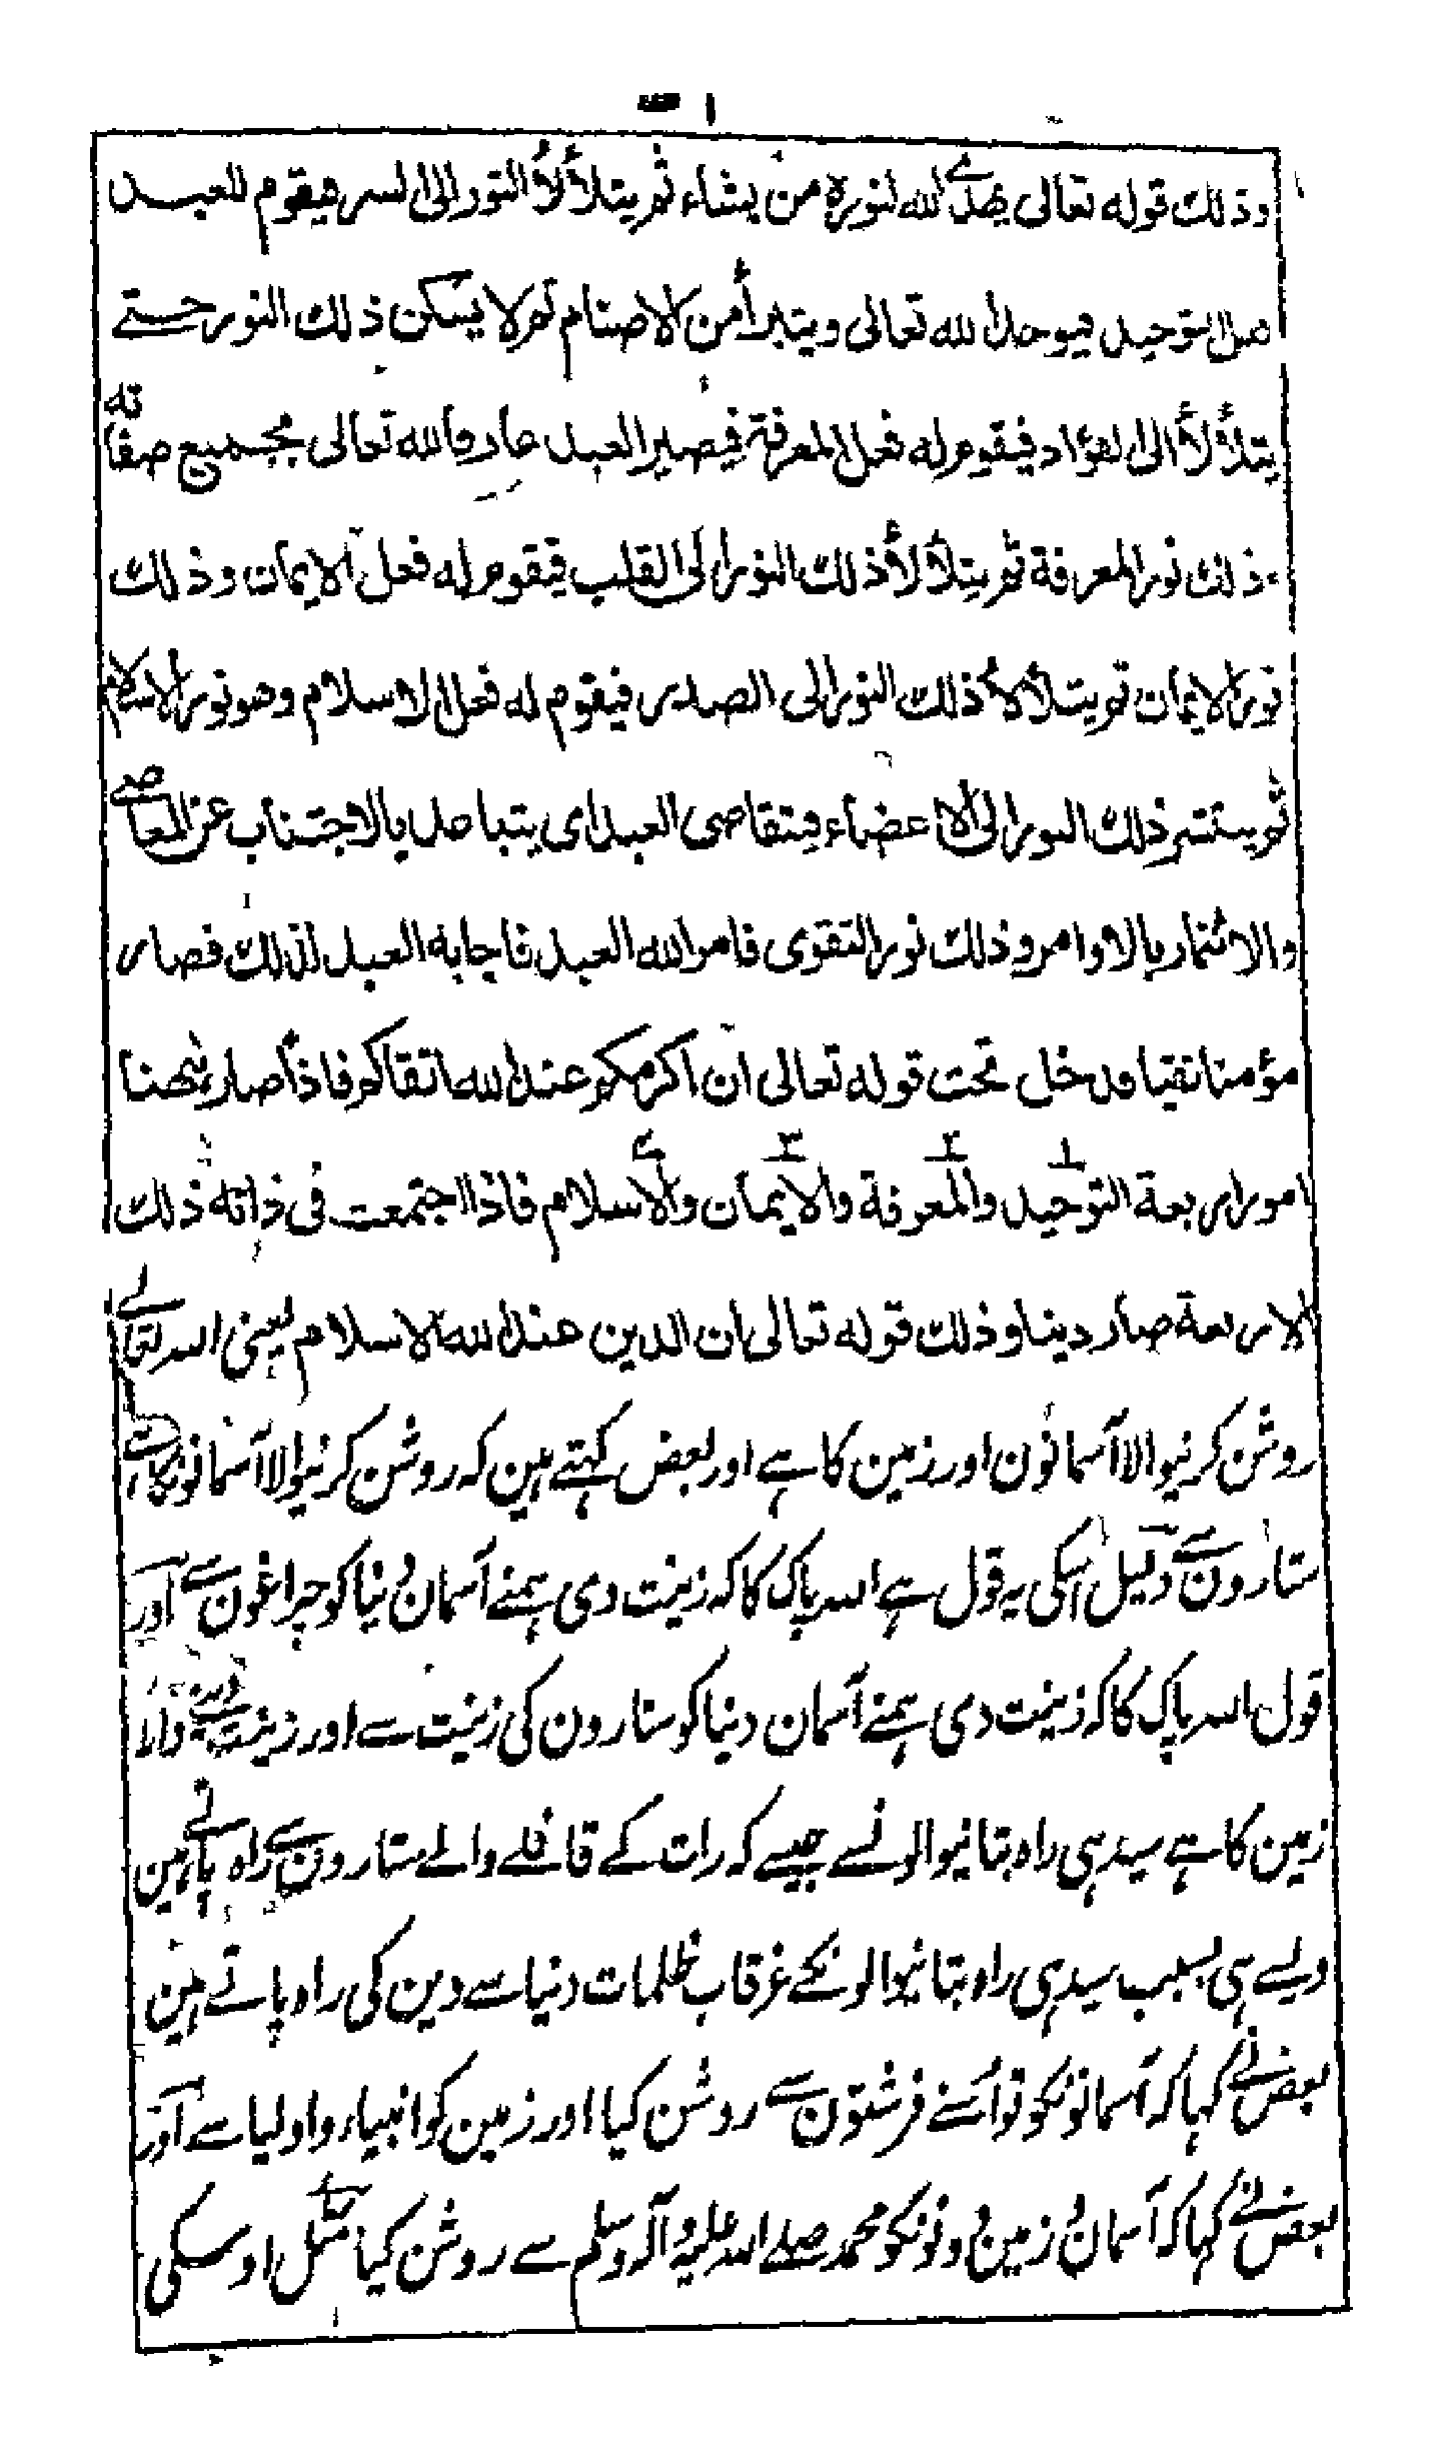 وذلك قوله تعالى يهدي الله لنوره من يشاء ثم يتلألأ النور الى السر فيقوم للعبد
فعل التوحيد فيوحد الله تعالى ويتبرأ من الاصنام ثم لا يسكن ذلك النور حتے
يتلألأ الى الفؤاد فيقوم له فعل المعرفة فيصير العبد عارفا لله تعالى بجميع صفاته
ذلك نور المعرفة ثم يتلألأ ذلك النور الى القلب فيقوم له فعل الايمان وذلك
نور الايمان ثم يتلألأ ذلك النور الى الصدر فيقوم له فعل الاسلام وهو نور الاسلام
ثم يستتر ذلك النور الى الاعضاء فيتقاضى العبد اى يتباعد بالاجتناب عن المعاصے
والائتمار بالاوامر وذلك نور التقوى فامر الله العبد فاجابه العبد لذلك فصار
مؤمنا تقيا ودخل تحت قوله تعالى ان اكرمكم عند الله اتقاكم فاذا صار ههنا
امور اربعة التوحيد والمعرفة والايمان والاسلام فاذا اجتمعت فى ذاته ذلك
الاربعة صار دينا وذلك قوله تعالى ان الدين عند الله الاسلام یعنی اللہ تعالے
روشن کرنیوالا آسمانون اور زمین کا ہے اور بعض کہتے ہین کہ روشن کرنیوالا آسمانونکا ہے
ستارون سے دلیل اسکی یہ قول ہے اللہ پاک کا کہ زینت دی ہمنے آسمان دنیا کو چراغون سے اور
قول اللہ پاک کا کہ زینت دی ہمنے آسمان دنیا کو ستارون کی زینت سے اور زینت دینے والا
زمین کا ہے سیدہی راہ بتانیوالونسے جیسے کہ رات کے قافلے والے ستارون سے راہ پاتے ہین
ویسے ہی بسبب سیدہی راہ بتانیوالونکے غرقاب ظلمات دنیا سے دین کی راہ پاتے ہین
بعض نے کہا کہ آسمانونکو تو اُسنے فرشتون سے روشن کیا اور زمین کو انبیاء و اولیا سے اور
بعض نے کہا کہ آسمان و زمین دونونکو محمد صلے اللہ علیہ وآلہ وسلم سے روشن کیا مثل اوسکی